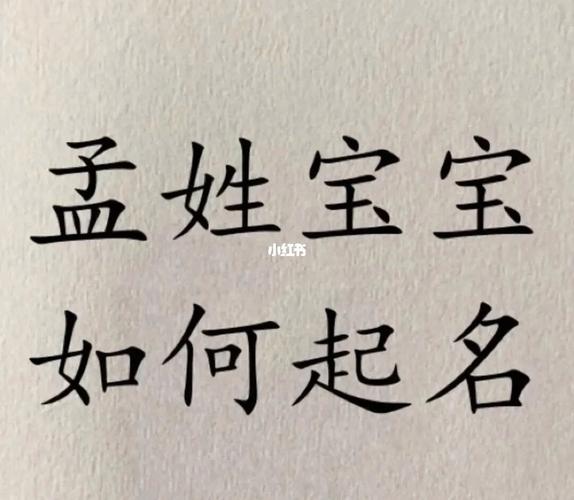 孟姓宝宝
小红书
如何起名